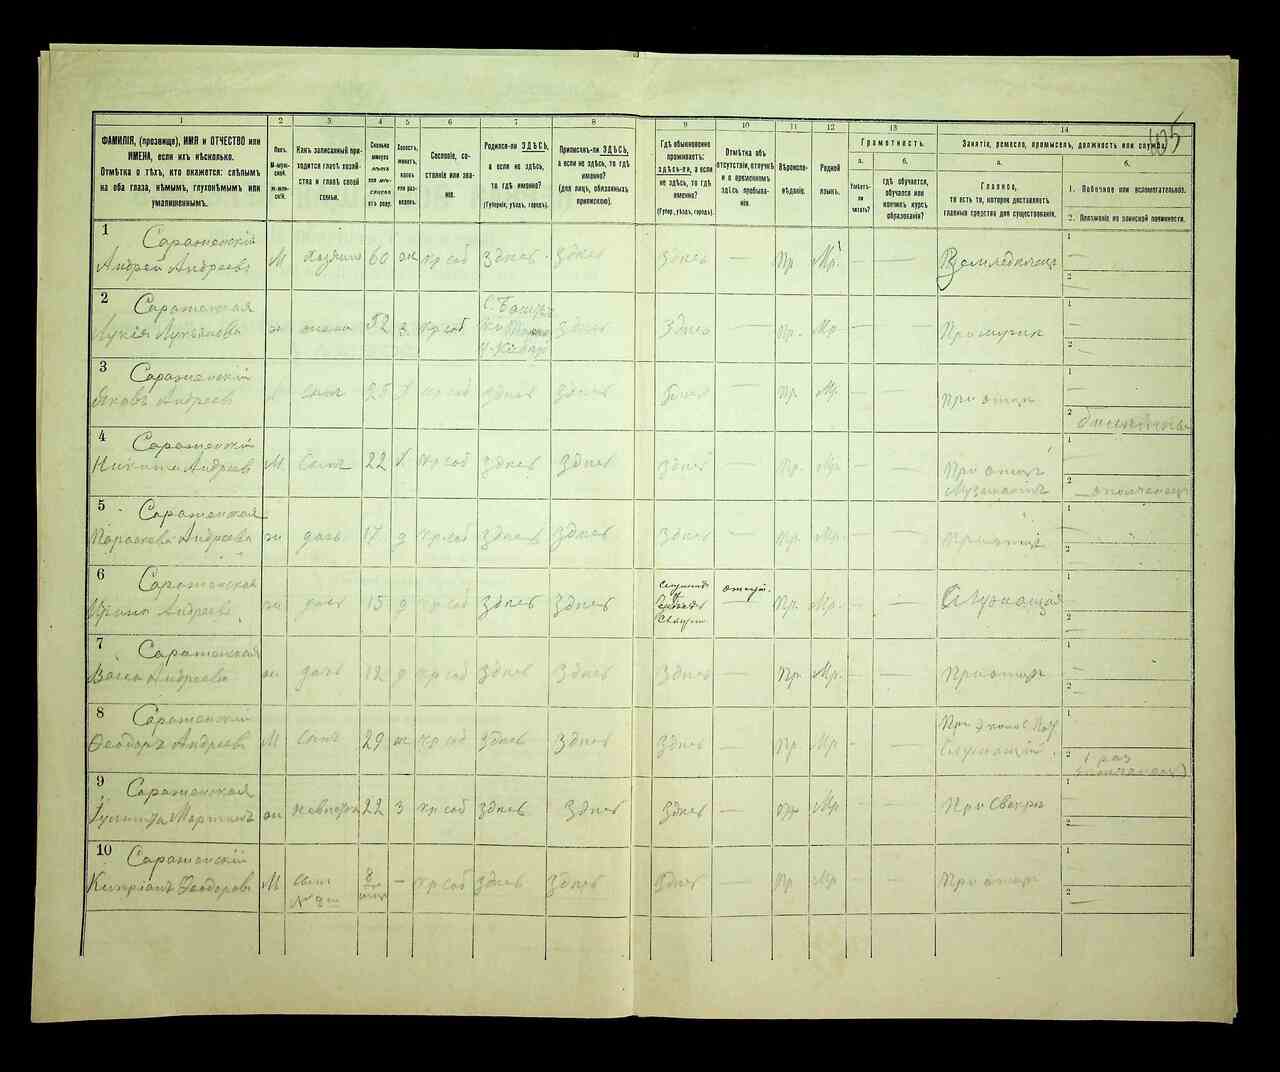 405
1 2 3 4 5 6 7 8 9 10 11 12 13 14
ФАМИЛІЯ, (прозвище), ИМЯ и ОТЧЕСТВО или
ИМЕНА, если ихъ нѣсколько.
Отмѣтка о тѣхъ, кто окажется: слѣпымъ
на оба глаза, нѣмымъ, глухонѣмымъ или
умалишеннымъ.
Полъ.
М-мужской.
Ж-женскій.
Какъ записанный приходится
главѣ хозяйства
и главѣ своей
семьи.
Сколько
минуло
лѣтъ
или мѣсяцевъ
отъ роду.
Холостъ,
женатъ,
вдовъ
или разведенъ.
Сословіе, состояніе
или званіе.
Родился-ли ЗДѢСЬ,
а если не здѣсь,
то гдѣ именно?
(Губернія, уѣздъ, городъ).
Приписанъ-ли ЗДѢСЬ,
а если не здѣсь, то гдѣ
именно?
(для лицъ, обязанныхъ
припискою).
Гдѣ обыкновенно
проживаетъ:
здѣсь-ли, а если
не здѣсь, то гдѣ
именно?
(Губер., уѣздъ, городъ).
Отмѣтка объ
отсутствіи, отлучкѣ
и о временномъ
здѣсь пребываніи.
Вѣроисповѣданіе.
Родной
языкъ.
Грамотность.
а. Умѣетъ-ли
читать?
б. гдѣ обучается,
обучался или
кончилъ курсъ
образованія?
Занятіе, ремесло, промыселъ, должность или служба.
а. Главное,
то есть то, которое доставляетъ
главныя средства для существованія.
б.
1. Побочное или вспомогательное.
2. Положеніе по воинской повинности.
1 Сараженскій
Андрей Андреевъ М хозяинъ 60 ж кр соб Здпсь Здпсь Здпсь — Пр. Мр. — — Земледѣлецъ
2 Сараженская
жена 52 з. кр соб Здпсь Здпсь — Пр. Мр — — При мужи
3 Сараженскій
Яковъ Андреев сынъ 25 х кр соб здпсь здпсь Здпсь — Пр. Мр. — — При отцѣ
4 Сараженскій
Никита Андреев М. Сынъ 22 х кр соб здпсь здпсь здпсь — Пр. Мр — — При отцѣ
ополченецъ
5 Сараженская
Параскева Андреева ж дочь 17 д кр соб Здпсь Здпсь Здпсь — Пр. Мр. — — При отцѣ
6 Сараженская
Андреева ж дочь 15 д кр соб Здпсь Здпсь отсут. Пр. Мр. — — Служащая
7 Сараженская
Васса Андреева ж дочь 12 д кр соб здпсь здпсь Здпсь — Пр. Мр. — — При отцѣ
8 Сараженскій
Ѳеодоръ Андреев М сынъ 29 ж кр соб Здпсь Здпсь Здпсь — Пр Мр — —
Служащій
1 раз
9 Сараженская
ж невѣстка 22 З кр соб Здпсь Здпсь Здпсь — пр Мр. — — При Свекрѣ
10 Сараженскій
Кипріанъ Ѳеодоровъ М сынъ — кр соб Здпсь Здпсь Здпсь — Пр. Мр — — При отцѣ
№ 8